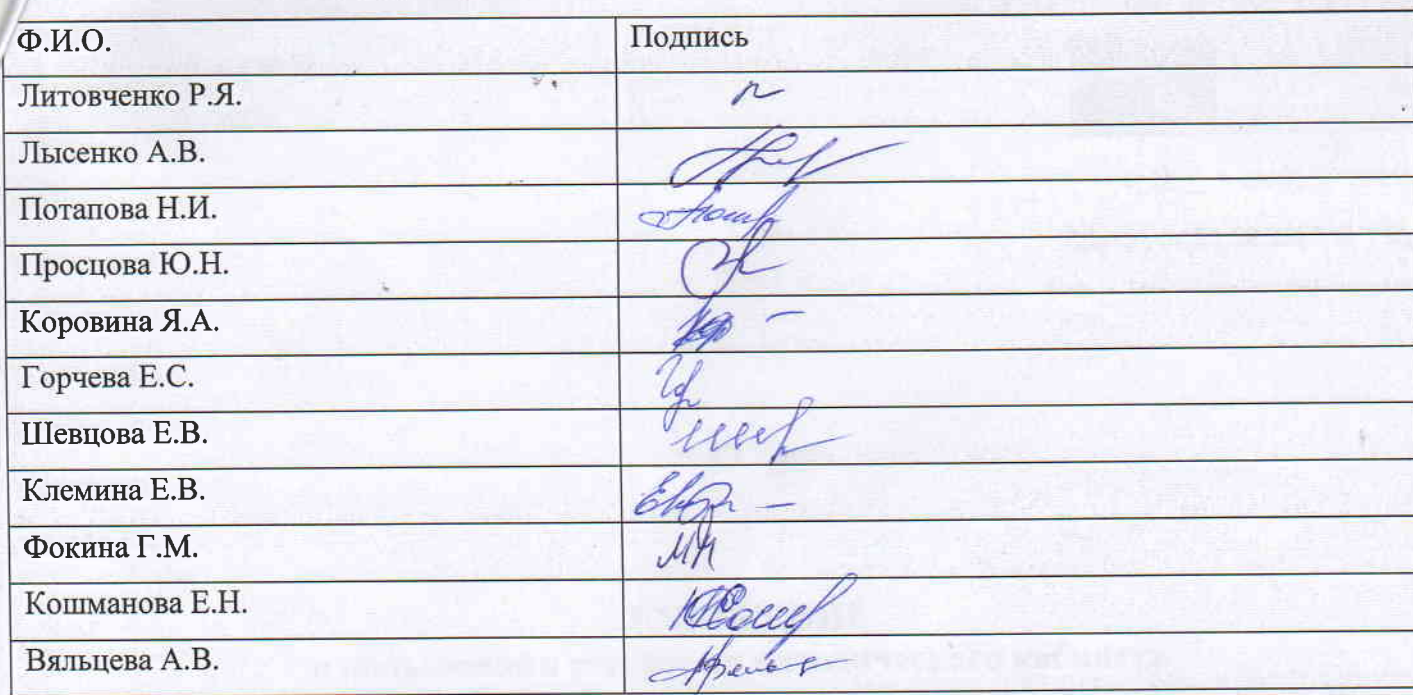 Ф.И.О. Подпись
Литовченко Р.Я.
Лысенко А.В.
Потапова Н.И.
Просцова Ю.Н.
Коровина Я.А.
Горчева Е.С.
Шевцова Е.В.
Клемина Е.В.
Фокина Г.М.
Кошманова Е.Н.
Вяльцева А.В.